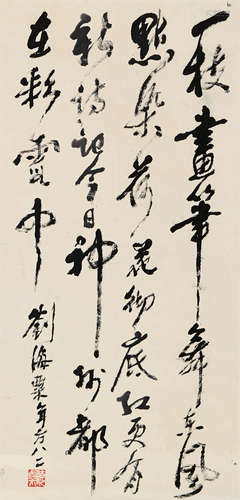 一枝畫筆舞東風
點染荷花徹底紅更有
新詩記今日神州都
在彩雲中
劉海粟年方八二